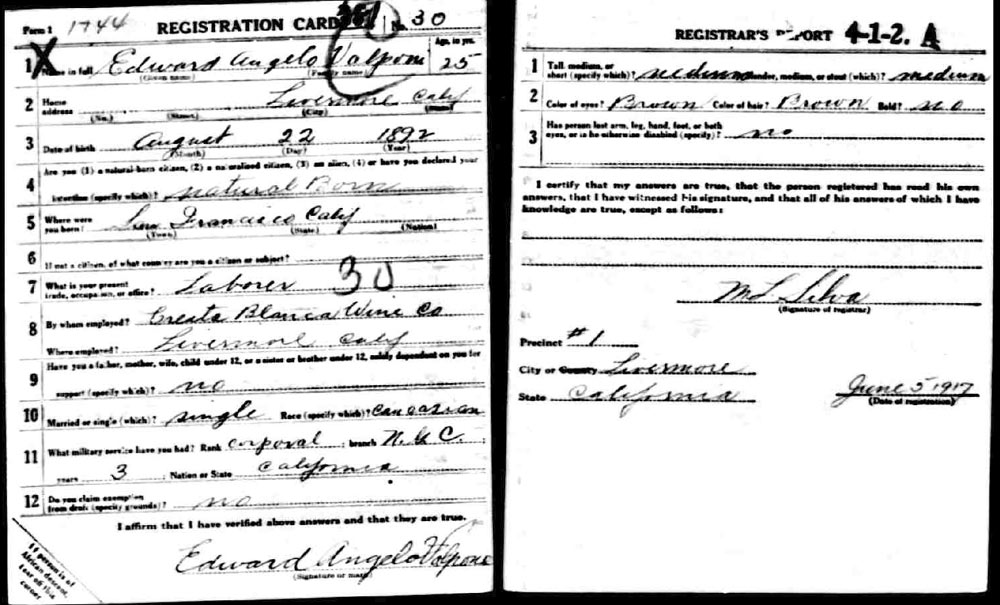 Form 1 1744 REGISTRATION CARD No. 30
1 Name in full Edward Angelo Volponi Age, in yrs. 25
(Given name) (Family name)
2 Home address Livermore Calif
(No.) (Street) (City) (State)
3 Date of birth August 22 1892
(Month) (Day) (Year)
4 Are you (1) a natural-born citizen, (2) a naturalized citizen, (3) an alien, (4) or have you declared your
intention (specify which)? natural Born
5 Where were you born? San Francisco Calif
(Town) (State) (Nation)
6 If not a citizen, of what country are you a citizen or subject?
7 What is your present trade, occupation, or office? Laborer 30
8 By whom employed? Cresta Blanca Wine Co
Where employed? Livermore Calif
9 Have you a father, mother, wife, child under 12, or a sister or brother under 12, solely dependent on you for
support (specify which)? no
10 Married or single (which)? single Race (specify which)? Caucasian
11 What military service have you had? Rank corporal ; branch N.G.C. ;
years 3 ; Nation or State California
12 Do you claim exemption from draft (specify grounds)? no
I affirm that I have verified above answers and that they are true.
Edward Angelo Volponi
(Signature or mark)
If person is of
African descent,
tear off this
corner
REGISTRAR'S REPORT 4-1-2. A
1 Tall, medium, or short (specify which)? medium Slender, medium, or stout (which)? medium
2 Color of eyes? Brown Color of hair? Brown Bald? no
3 Has person lost arm, leg, hand, foot, or both
eyes, or is he otherwise disabled (specify)? no
I certify that my answers are true, that the person registered has read his own
answers, that I have witnessed his signature, and that all of his answers of which I have
knowledge are true, except as follows:
M L Silva
(Signature of registrar)
Precinct #1
City or County Livermore
State California June 5 1917
(Date of registration)